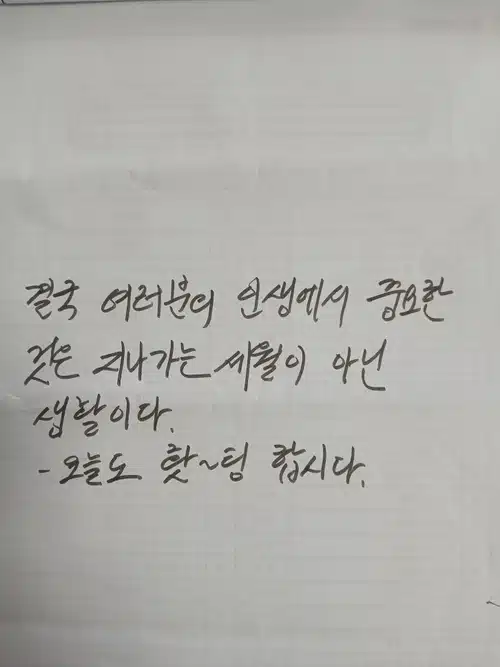 결국 여러분의 인생에서 중요한
것은 지나가는 세월이 아닌
생활이다.
- 오늘도 홧~팅 합시다.